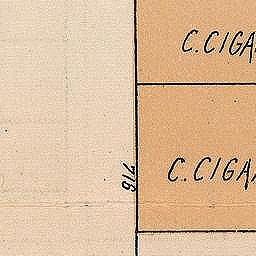 C.CIGA
716
C.CIGA